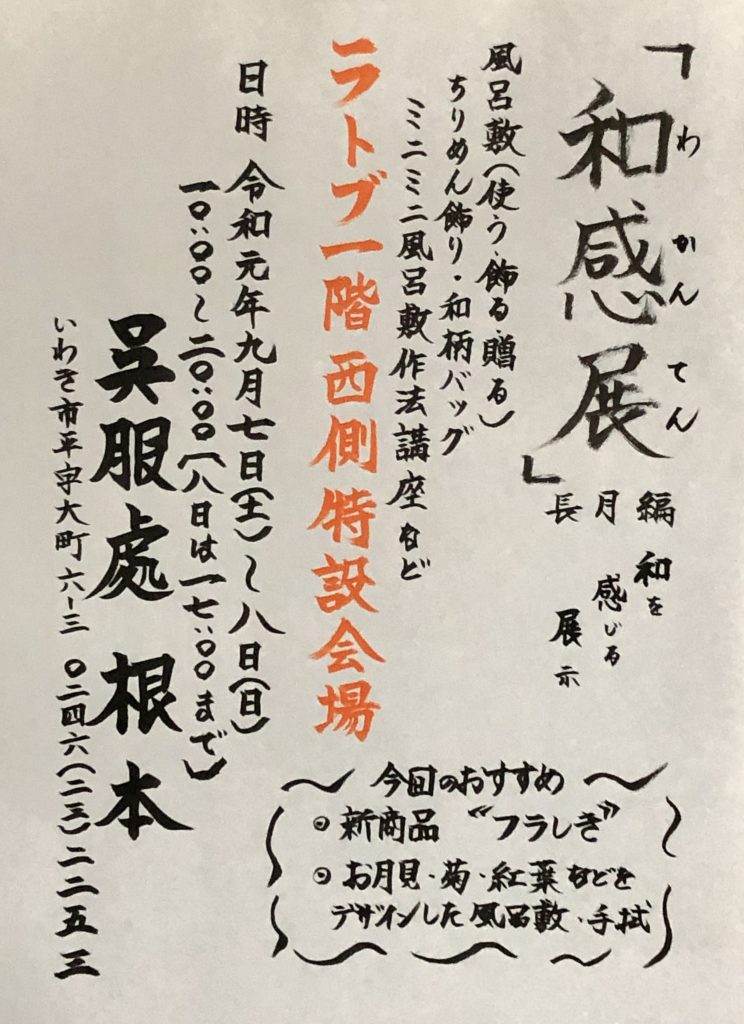 「和感展」
わかんてん
長月編
和を
感じる
展示
風呂敷(使う・飾る・贈る)
ちりめん飾り・和柄バッグ
ミニミニ風呂敷作法講座など
ラトブ一階 西側特設会場
日時 令和元年九月七日(土)〜八日(日)
一〇:〇〇〜二〇:〇〇(八日は一七:〇〇まで)
呉服處 根本
いわき市平字大町六-三 〇二四六(二三)二二五三
今回のおすすめ
◦新商品 “フラしき”
◦お月見・菊・紅葉などを
デザインした風呂敷・手拭